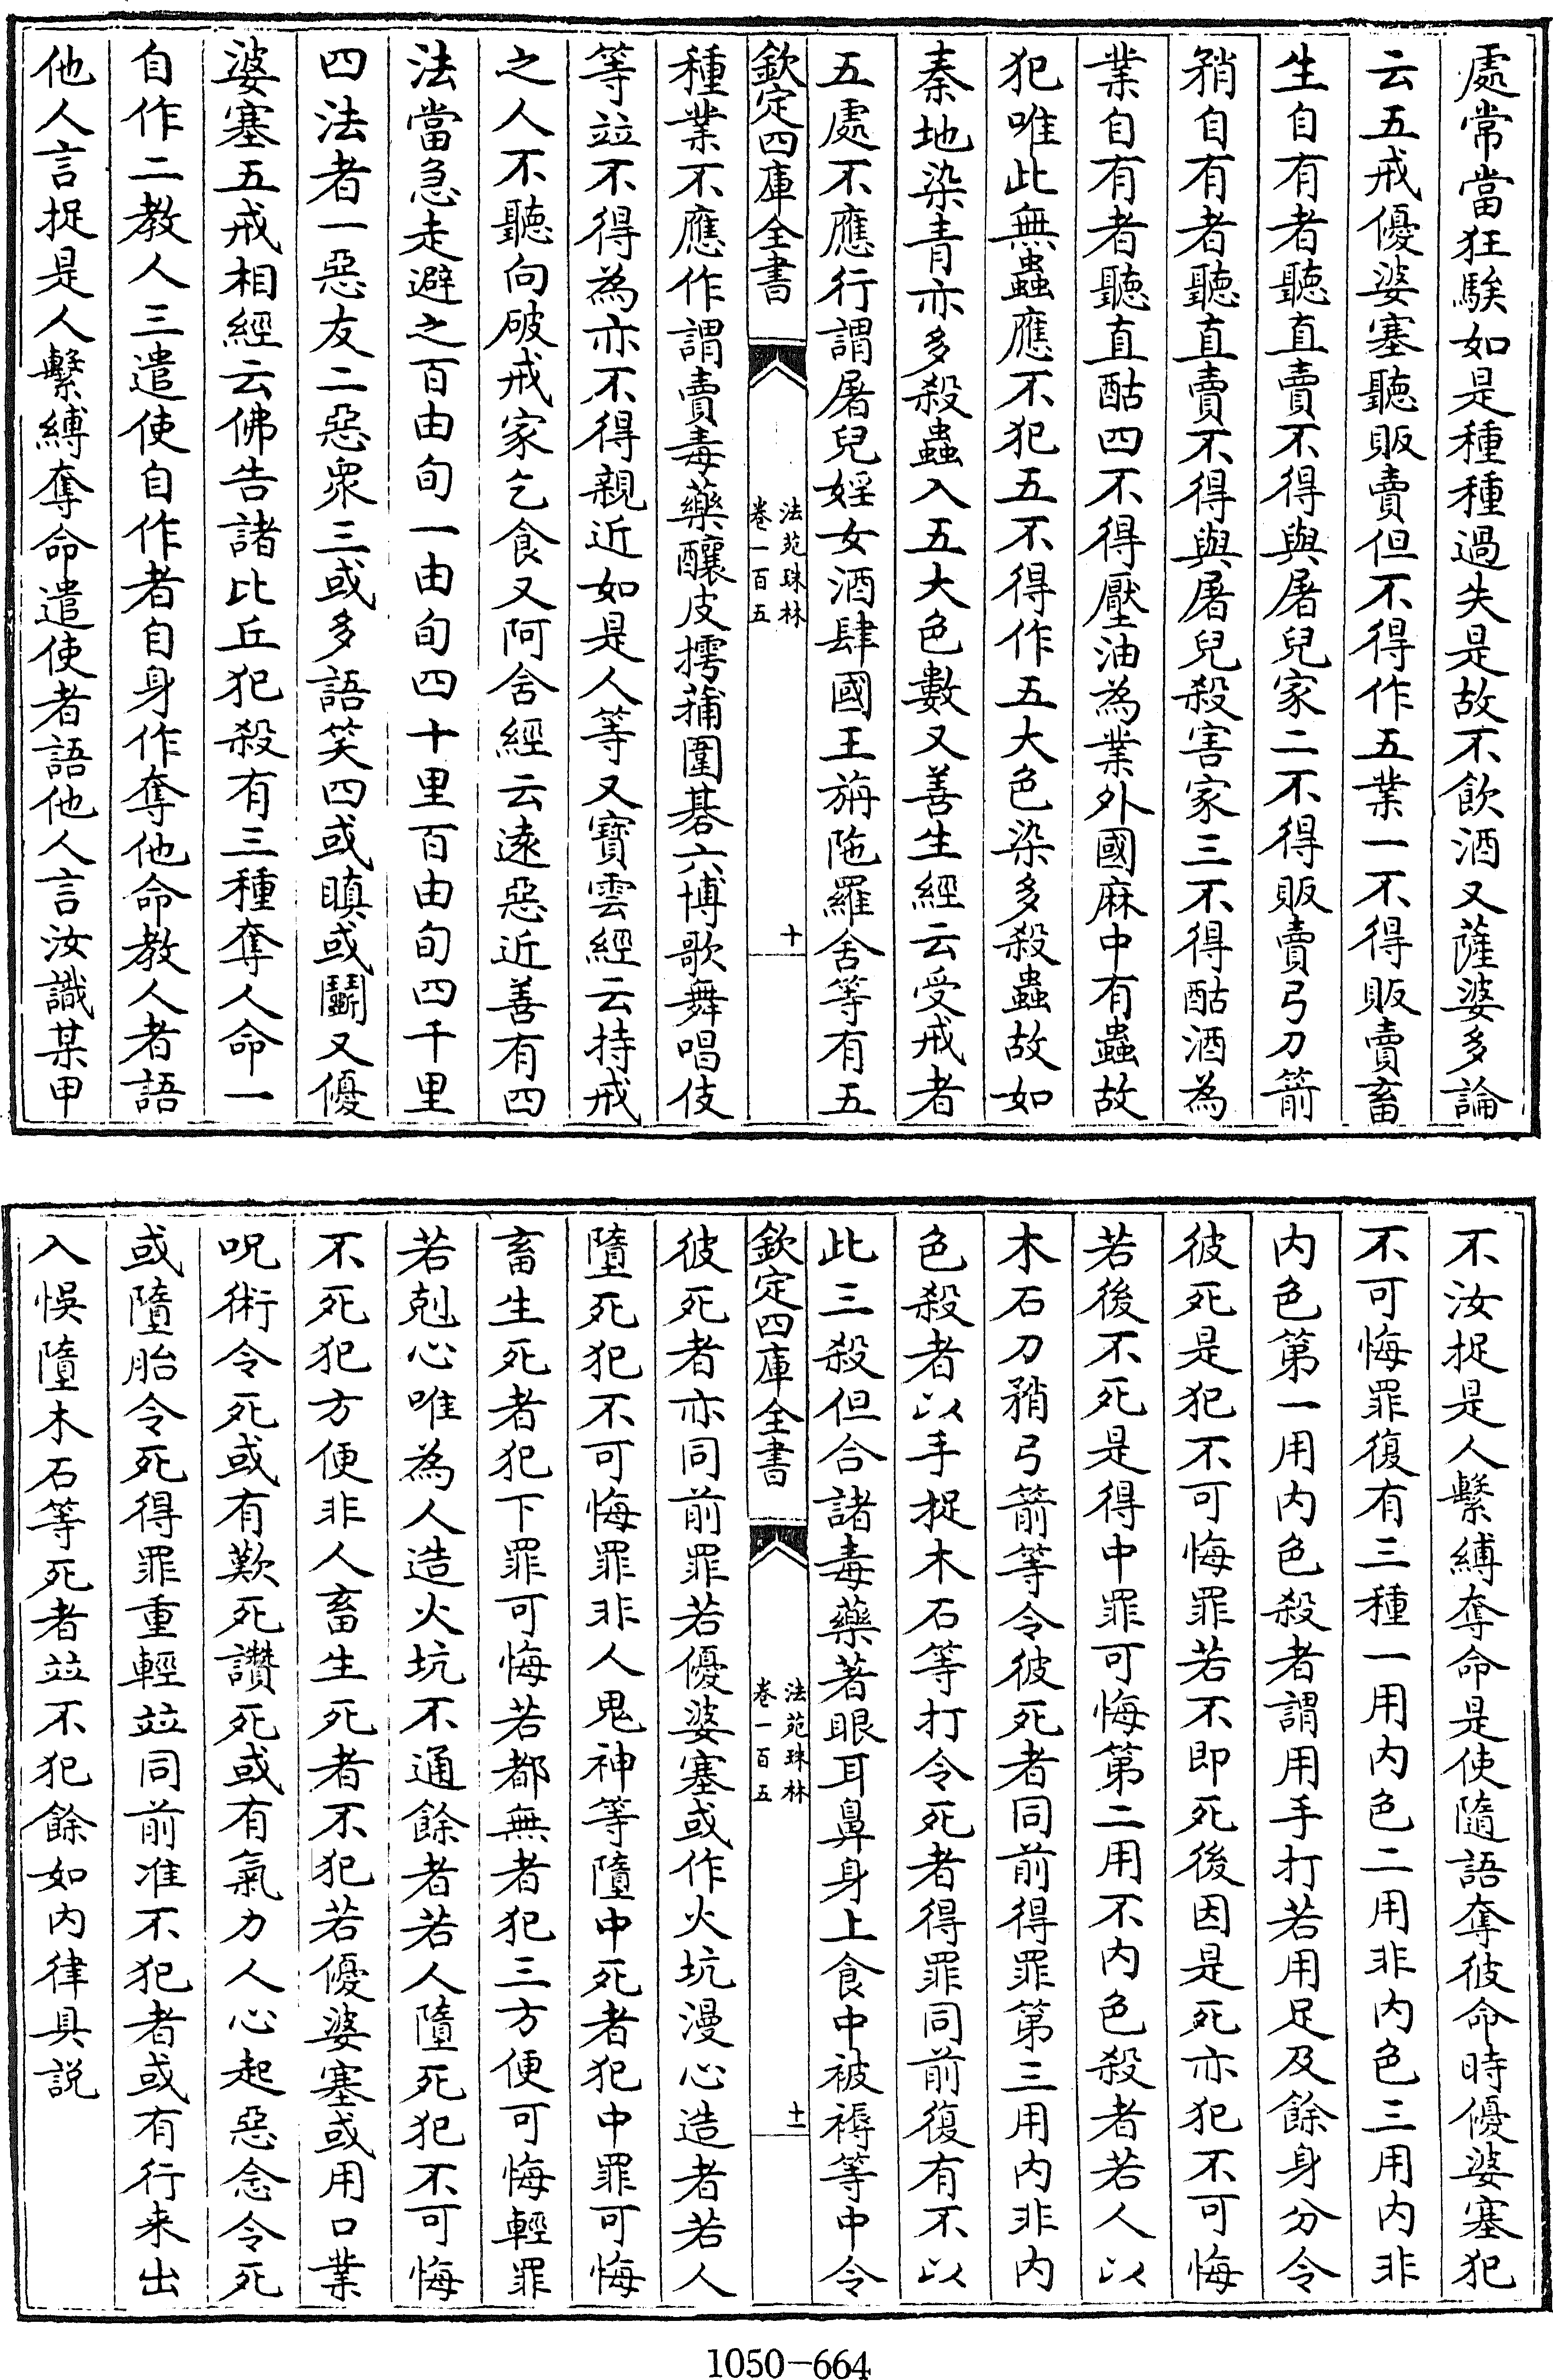 處常當狂騃如是種種過失是故不飲酒又薩婆多論
云五戒優婆塞聽販賣但不得作五業一不得販賣畜
生自有者聽直賣不得與屠兒家二不得販賣弓刀箭
矟自有者聽直賣不得與屠兒殺害家三不得酤酒為
業自有者聽直酤四不得壓油為業外國麻中有蟲故
犯唯此無蟲應不犯五不得作五大色染多殺蟲故如
秦地染青亦多殺蟲入五大色數又善生經云受戒者
五處不應行謂屠兒婬女酒肆國王旃陁羅舍等有五
欽定四庫全書
法苑珠林
卷一百五
十
種業不應作謂賣毒藥釀皮摴蒱圍碁六博歌舞唱伎
等並不得為亦不得親近如是人等又寶雲經云持戒
之人不聽向破戒家乞食又阿含經云遠惡近善有四
法當急走避之百由旬一由旬四十里百由旬四千里
四法者一惡友二惡衆三或多語笑四或瞋或鬭又優
婆塞五戒相經云佛告諸比丘犯殺有三種奪人命一
自作二教人三遣使自作者自身作奪他命教人者語
他人言捉是人繫縛奪命遣使者語他人言汝識某甲
不汝捉是人繫縛奪命是使隨語奪彼命時優婆塞犯
不可悔罪復有三種一用内色二用非内色三用内非
内色第一用内色殺者謂用手打若用足及餘身分令
彼死是犯不可悔罪若不即死後因是死亦犯不可悔
若後不死是得中罪可悔第二用不内色殺者若人以
木石刀矟弓箭等令彼死者同前得罪第三用内非内
色殺者以手捉木石等打令死者得罪同前復有不以
此三殺但合諸毒藥著眼耳鼻身上食中被褥等中令
欽定四庫全書
法苑珠林
卷一百五
十一
彼死者亦同前罪若優婆塞或作火坑漫心造者若人
墮死犯不可悔罪非人鬼神等墮中死者犯中罪可悔
畜生死者犯下罪可悔若都無者犯三方便可悔輕罪
若剋心唯為人造火坑不通餘者若人墮死犯不可悔
不死犯方便非人畜生死者不犯若優婆塞或用口業
呪術令死或有歎死讚死或有氣力人心起惡念令死
或墮胎令死得罪重輕並同前准不犯者或有行来出
入悮墮木石等死者並不犯餘如内律具説
1050-664